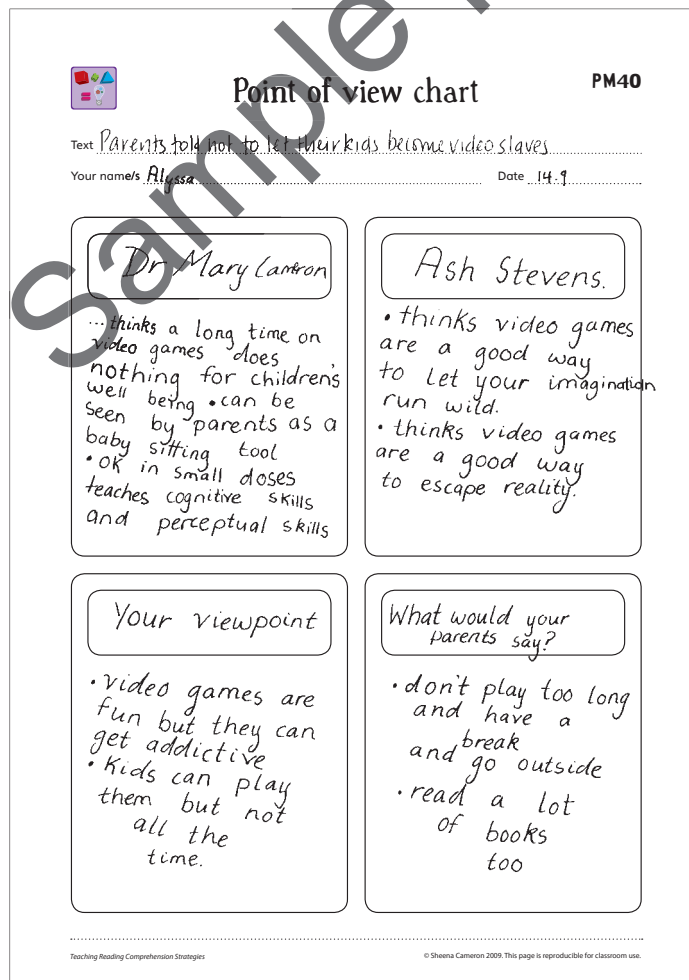 Sample
Point of view chart
PM40
Text Parents told not to let their kids become video slaves
Your name/s Alyssa
Date 14.9
Dr Mary Cameron
... thinks a long time on
video games does
nothing for children's
well being • can be
seen by parents as a
baby sitting tool
• OK in small doses
teaches cognitive skills
and perceptual skills
Ash Stevens.
• thinks video games
are a good way
to let your imagination
run wild.
• thinks video games
are a good way
to escape reality.
Your viewpoint
• video games are
fun but they can
get addictive
• Kids can play
them but not
all the
time.
What would your
parents say?
• don't play too long
and have a
break
and go outside
• read a lot
of books
too
Teaching Reading Comprehension Strategies
© Sheena Cameron 2009. This page is reproducible for classroom use.